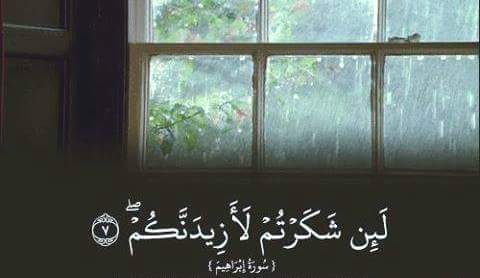 لَئِن شَكَرْتُمْ لَأَزِيدَنَّكُمْ ۖ ٧
{ سُورَةُ إِبْرَاهِيمَ }